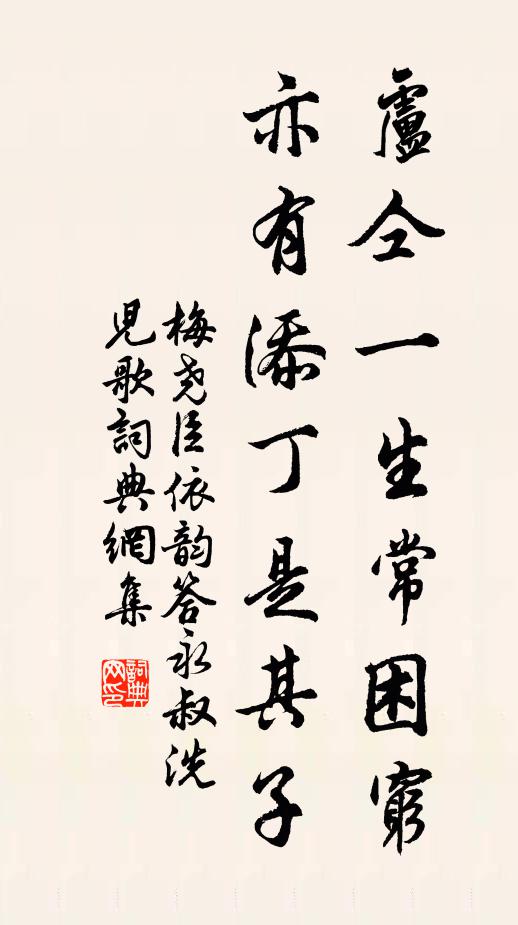 盧仝一生常困窮
亦有添丁是其子
梅尧臣依韵答永叔洗
児歌詞典網集
詞典网印